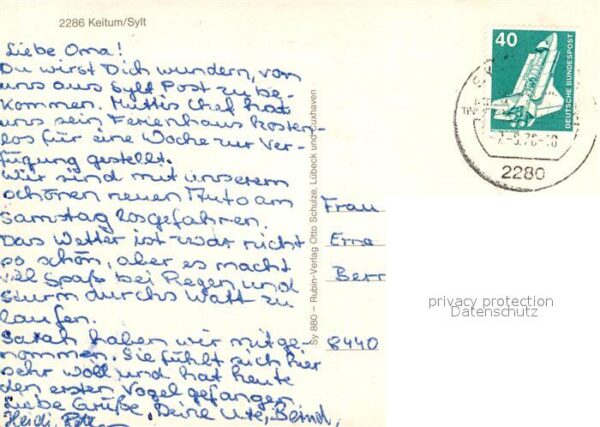 2286 Keitum/Sylt
Liebe Oma!
Du wirst Dich wundern, von
uns aus Sylt Post zu be-
kommen. Muttis Chef hat
uns sein Ferienhaus kosten-
los für eine Woche zur Ver-
fügung gestellt.
Wir sind mit unserem
schönen neuen Auto am
Samstag losgefahren.
Das Wetter ist zwar nicht
so schön, aber es macht
viel Spaß bei Regen und
Sturm durchs Watt zu
laufen.
Sarah haben wir mitge-
nommen. Sie fühlt sich hier
sehr wohl und hat heute
den ersten Vogel gefangen.
Liebe Grüße, Deine Ute, Bernd,
Heidi,
Sy 880 – Rubin-Verlag Otto Schulze, Lübeck und Cuxhaven
40
DEUTSCHE BUNDESPOST
2280
Frau
Erna
Berr
8440
privacy protection
Datenschutz